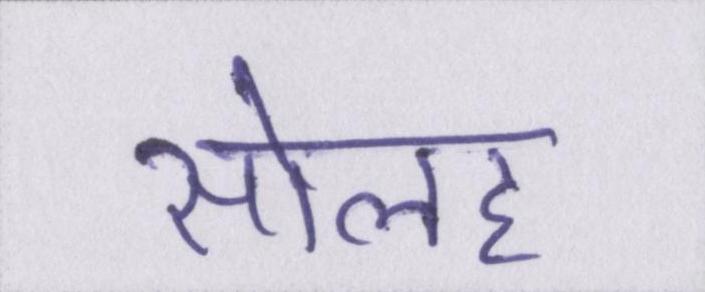 सोलह